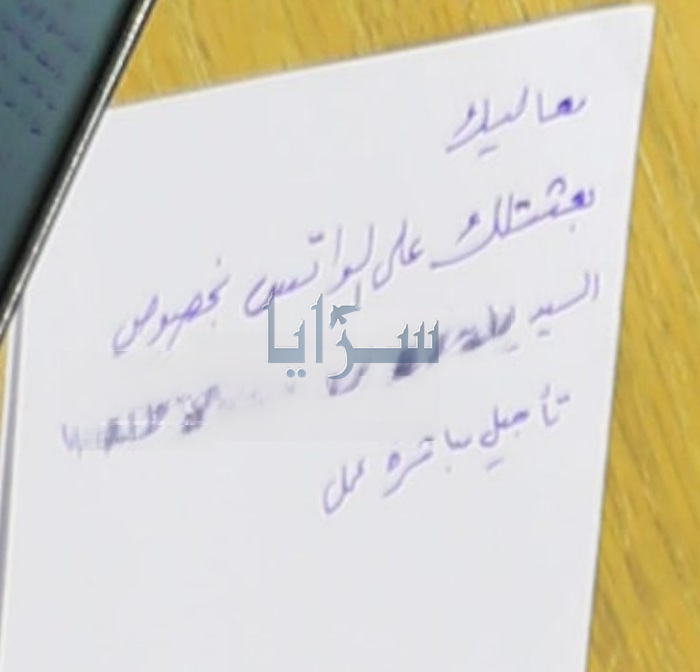 معاليك
بعثتلك على الواتس بخصوص
السيد
تأجيل مباشرة عمل
سرايا